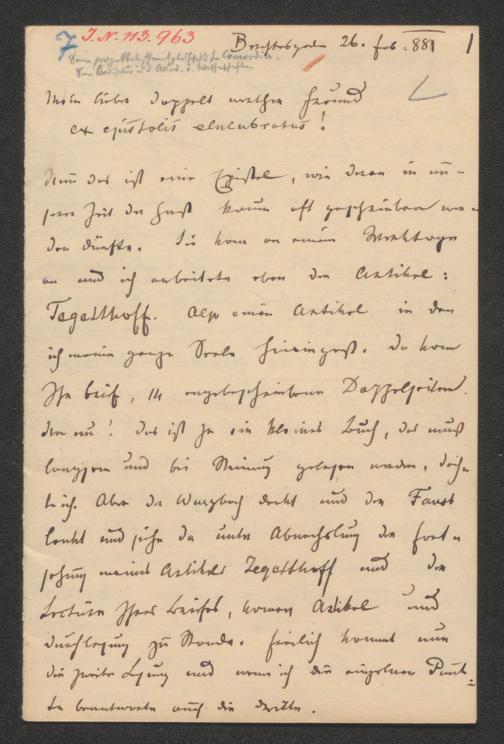 7 I.N. 113.963
Berchtesgaden 26. Feb. 881 1
Mein lieber doppelt werther Freund
ex epistolis elucubratus!
Denn das ist eine Epistel, wie deren in un=
serer Zeit der Hast kaum oft geschrieben wer=
den dürfte. Sie kam an einem Werktage
an und ich arbeitete eben den Artikel:
Tegetthoff. Also einen Artikel in den
ich meine ganze Seele hineingoß. Da kam
Ihr Brief, 14 engbeschriebene Doppelseiten.
Der nu! das ist ja ein kleines Buch, das muß
langsam und bis gelesen werden, dach=
te ich. Aber der Wurzbach denkt und der Faust
lenkt und siehe da unter Abwechslung der Fort=
setzung meines Artikels Tegetthoff und der
Lectüre Ihres Briefes, kamen Artikel und
zu Stande. Freilich kommt nun
die zweite Lesung und wenn ich die einzelnen Punk=
te beantworte auch die dritte.